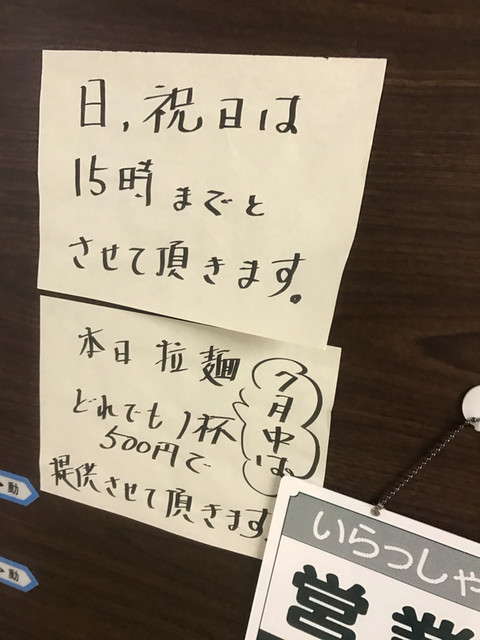 日,祝日は
15時までと
させて頂きます。
本日 拉麺
7月中は
どれでも1杯
500円で
提供させて頂きます
動
動
いらっしゃ
営業